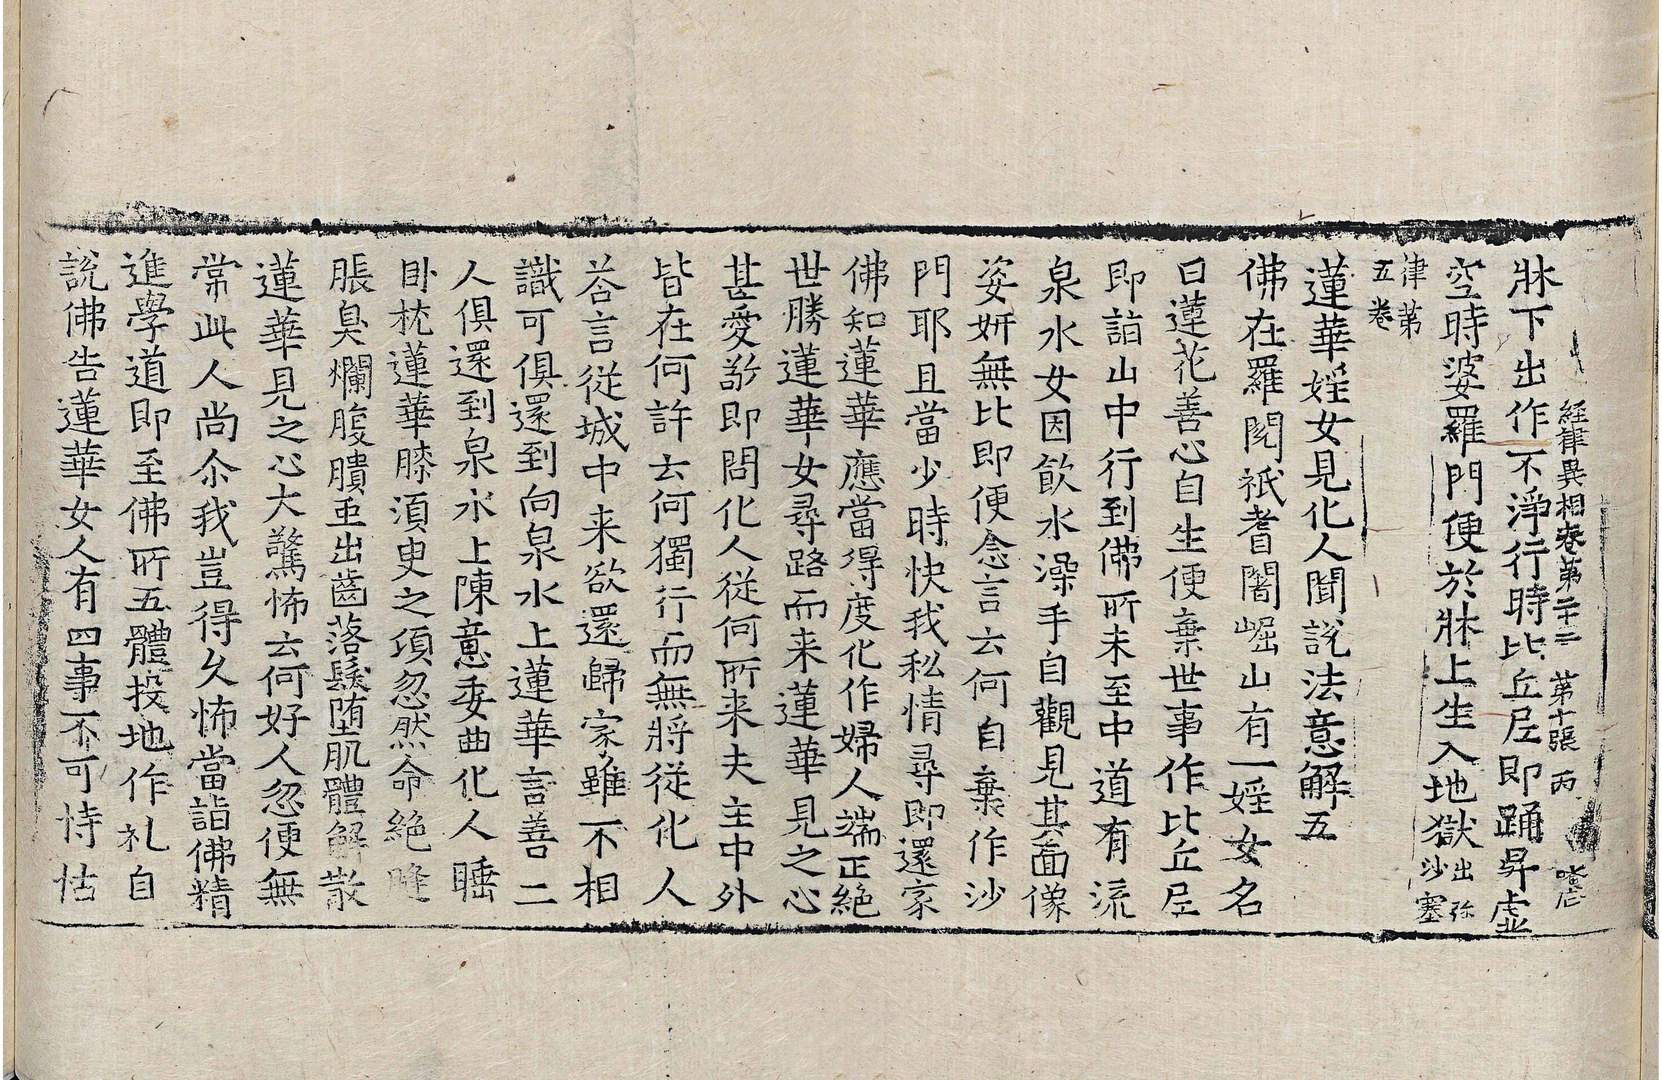 經律異相卷第二十三 第十張 丙
牀下出作不淨行時比丘尼即踊昇虛
空時婆羅門便於牀上生入地獄出弥沙塞
律第五卷
蓮華婬女見化人聞說法意解五
佛在羅閱祇耆闍崛山有一婬女名
曰蓮花善心自生便棄世事作比丘尼
即詣山中行到佛所未至中道有流
泉水女因飲水澡手自觀見其面像
姿妍無比即便念言云何自棄作沙
門耶且當少時快我私情尋即還家
佛知蓮華應當得度化作婦人端正絕
世勝蓮華女尋路而来蓮華見之心
甚愛敬即問化人從何所来夫主中外
皆在何許云何獨行而無將從化人
荅言從城中来欲還歸家雖不相
識可俱還到向泉水上蓮華言善二
人俱還到泉水上陳意委曲化人睡
卧枕蓮華膝湏臾之項忽然命絕膖
脹臭爛腹膭虫出齒落髮堕肌體解散
蓮華見之心大驚怖云何好人忽便無
常此人尚尒我豈得久怖當詣佛精
進學道即至佛所五體投地作礼自
說佛告蓮華女人有四事不可恃怙